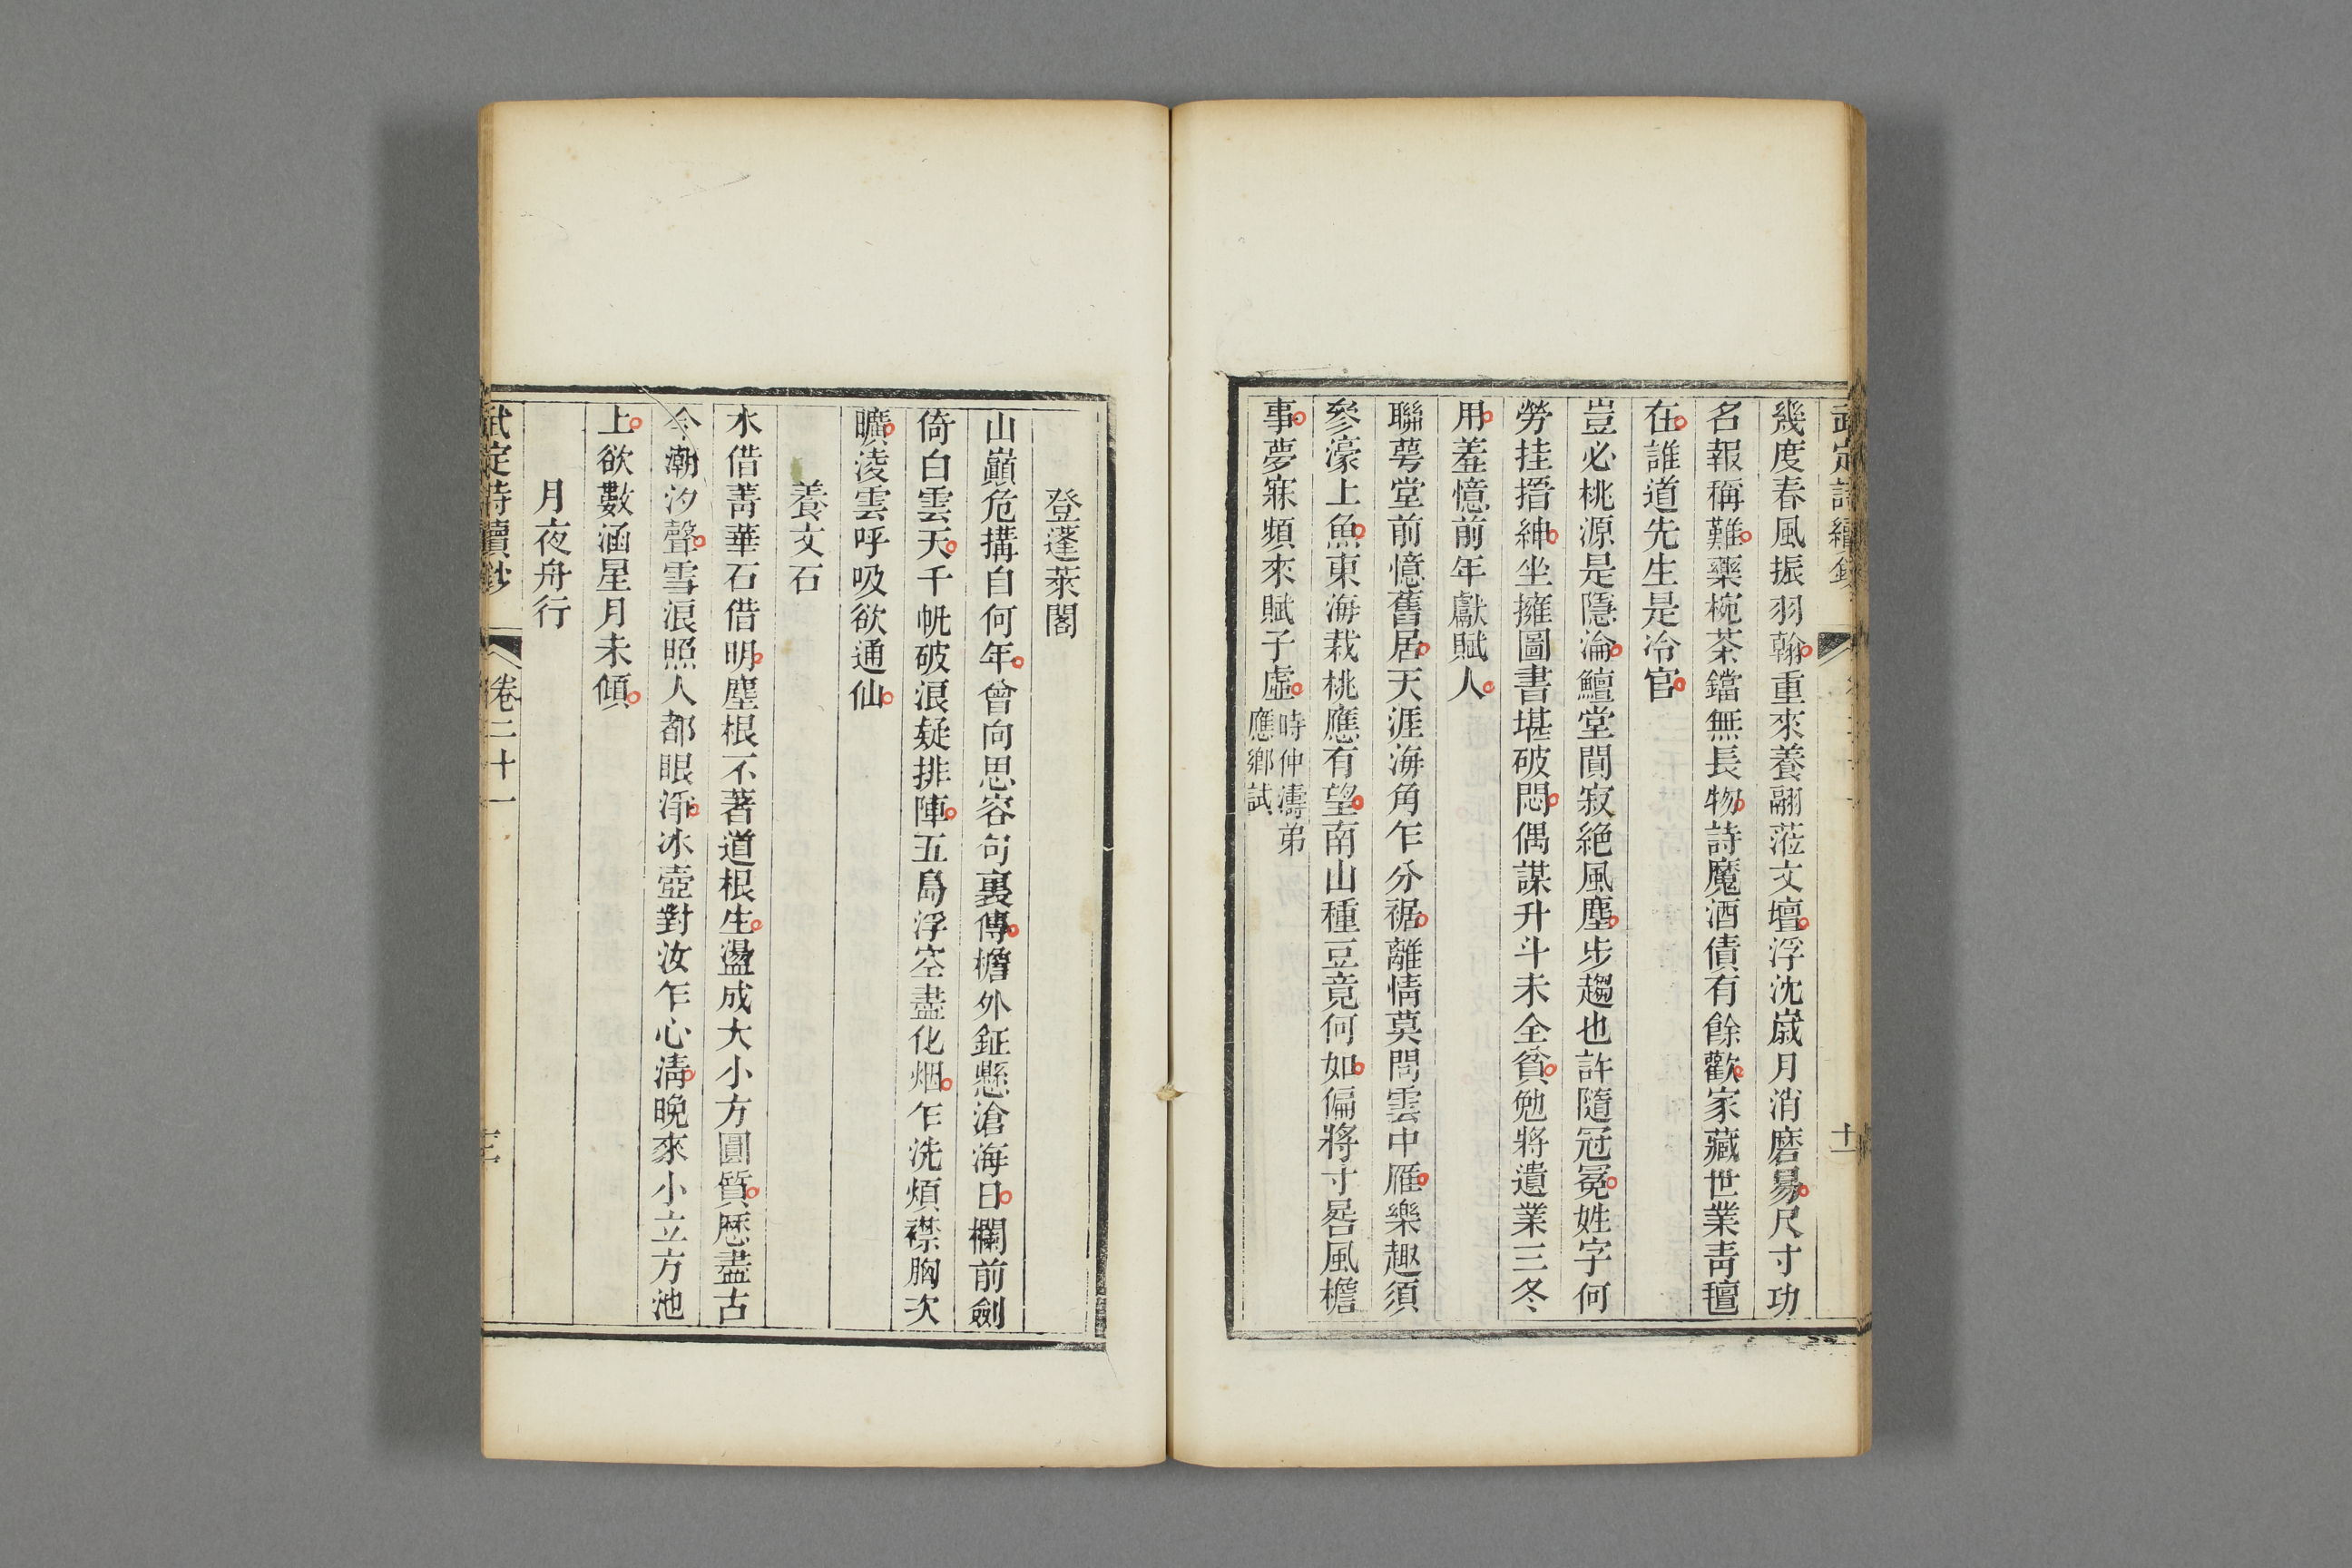 幾度春風振羽翰重來養翮蒞文壇浮沈歲月消磨易尺寸功
名報稱難藥椀茶鐺無長物詩魔酒債有餘歡家藏世業青氊
在誰道先生是冷官
豈必桃源是隱淪鱣堂闃寂絕風塵步趨也許隨冠冕姓字何
勞挂搢紳坐擁圖書堪破悶偶謀升斗未全貧勉將遺業三冬
用羞憶前年獻賦人
聯萼堂前憶舊居天涯海角乍分裾離情莫問雲中雁樂趣須
參濠上魚東海栽桃應有望南山種豆竟何如偏將寸晷風檐
事夢寐頻來賦子虛
時仲濤弟
應鄉試
登蓬萊閣
山巓危搆自何年曾向思容句裏傳檐外鉦懸滄海日欄前劍
倚白雲天千帆破浪疑排陣五島浮空盡化烟乍洗煩襟胸次
曠淩雲呼吸欲通仙
養文石
水借菁華石借明塵根不著道根生盪成大小方圓質歷盡古
今潮汐聲雪浪照人都眼淨冰壺對汝乍心淸晚來小立方池
上欲數涵星月未傾
月夜舟行
武定詩續鈔 卷二十一